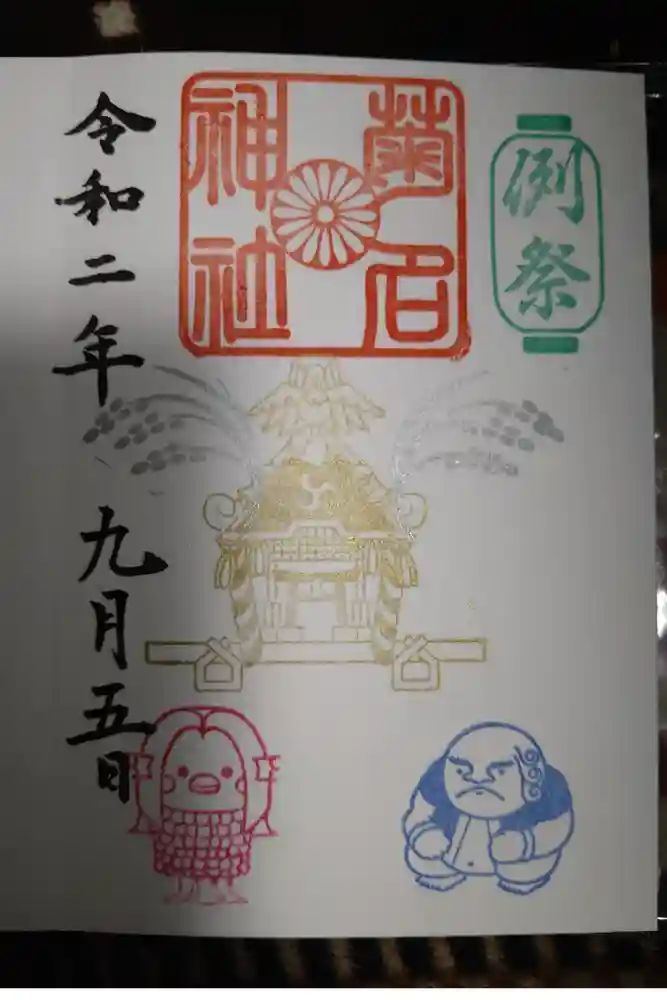 例祭
菊名
神社
令和二年 九月五日